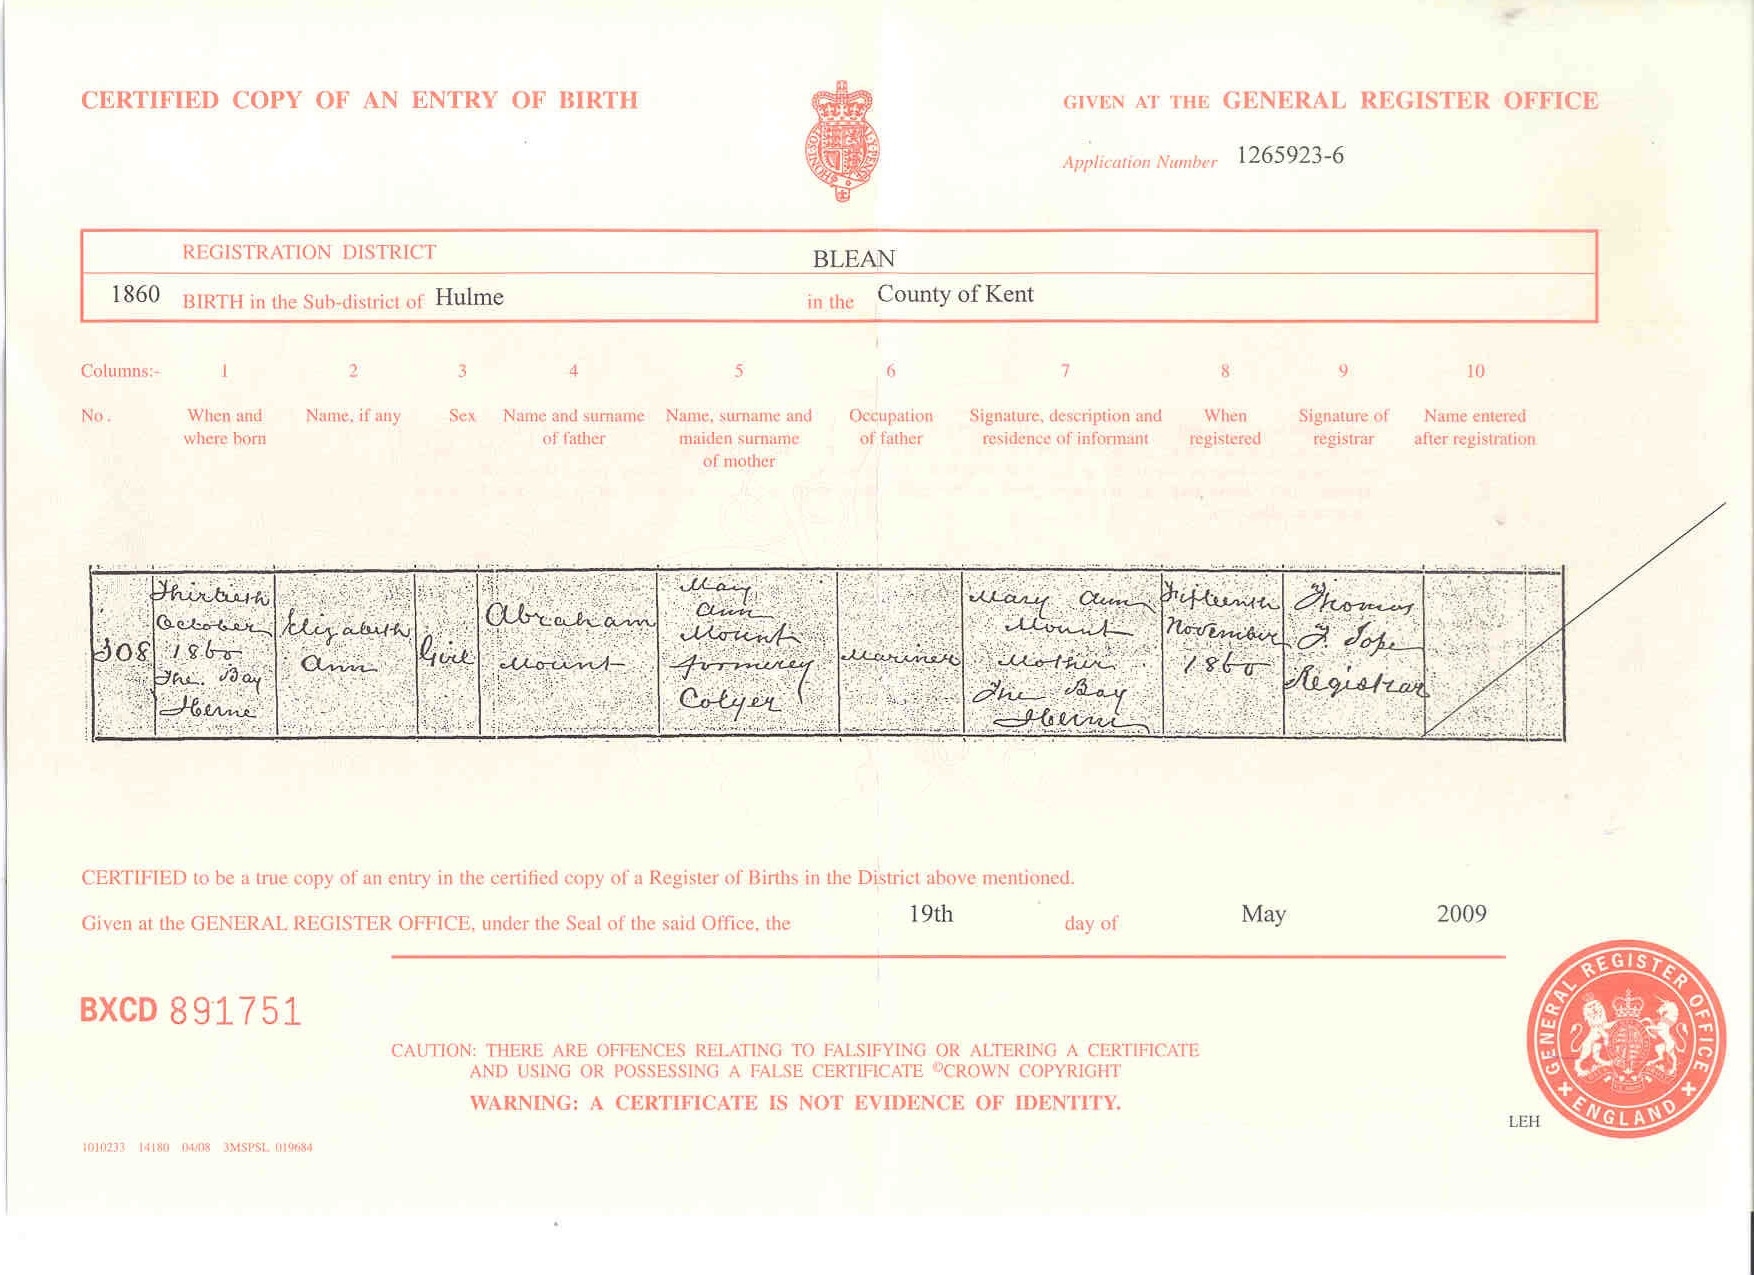 CERTIFIED COPY OF AN ENTRY OF BIRTH
GIVEN AT THE GENERAL REGISTER OFFICE
Application Number 1265923-6
REGISTRATION DISTRICT BLEAN
1860 BIRTH in the Sub-district of Hulme in the County of Kent
Columns:- 1 2 3 4 5 6 7 8 9 10
No. When and where born
Name, if any
Sex
Name and surname of father
Name, surname and maiden surname of mother
Occupation of father
Signature, description and residence of informant
When registered
Signature of registrar
Name entered after registration
308
Thirtieth
October
1860
The Bay
Herne
Elizabeth
Ann
Girl
Abraham
Mount
Mary
Ann
Mount
formerly
Colyer
Mariner
Mary Ann
Mount
Mother
The Bay
Herne
Fifteenth
November
1860
Thomas
Registrar
CERTIFIED to be a true copy of an entry in the certified copy of a Register of Births in the District above mentioned.
Given at the GENERAL REGISTER OFFICE, under the Seal of the said Office, the 19th day of May 2009
BXCD 891751
CAUTION: THERE ARE OFFENCES RELATING TO FALSIFYING OR ALTERING A CERTIFICATE
AND USING OR POSSESSING A FALSE CERTIFICATE ©CROWN COPYRIGHT
WARNING: A CERTIFICATE IS NOT EVIDENCE OF IDENTITY.
GENERAL REGISTER OFFICE
ENGLAND
LEH
1010233 14180 04/08 3MSPSL 019684